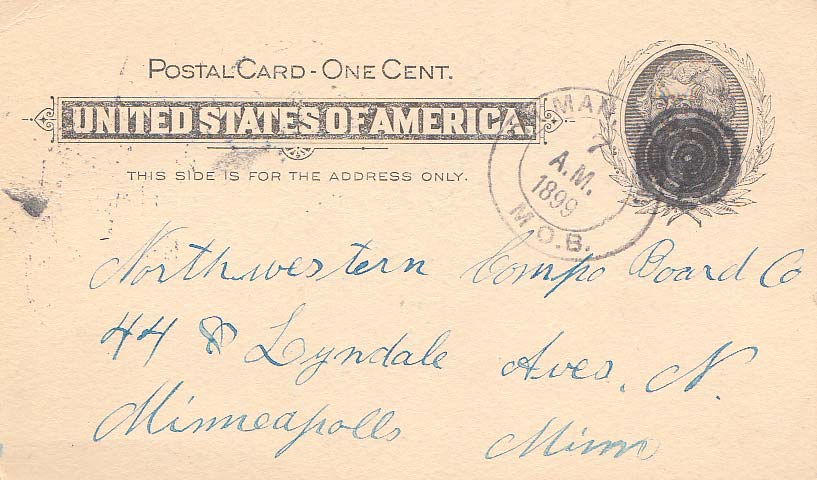 POSTAL CARD - ONE CENT.
UNITED STATES OF AMERICA.
THIS SIDE IS FOR THE ADDRESS ONLY.
MAN.
7
A.M.
1899
M.O.B.
Northwestern Compo Board Co
44 & Lyndale Aves. N.
Minneapolls Minn